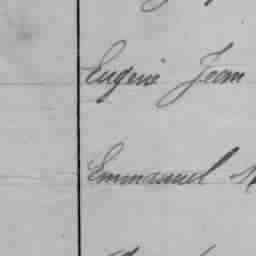 Eugène Jean
Emmanuel